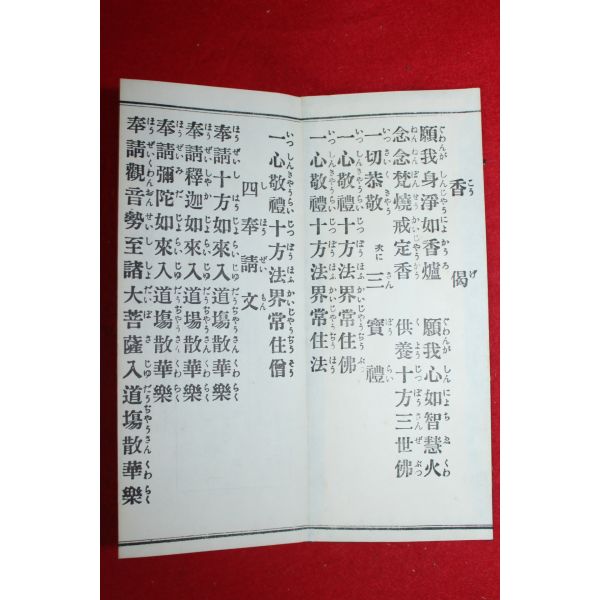 香偈
願我身淨如香爐　願我心如智慧火
念念焚燒戒定香　供養十方三世佛
一切恭敬　次に　三寶禮
一心敬禮十方法界常住佛
一心敬禮十方法界常住法
一心敬禮十方法界常住僧
四奉請文
奉請十方如來入道塲散華樂
奉請釋迦如來入道塲散華樂
奉請彌陀如來入道塲散華樂
奉請觀音勢至諸大菩薩入道塲散華樂